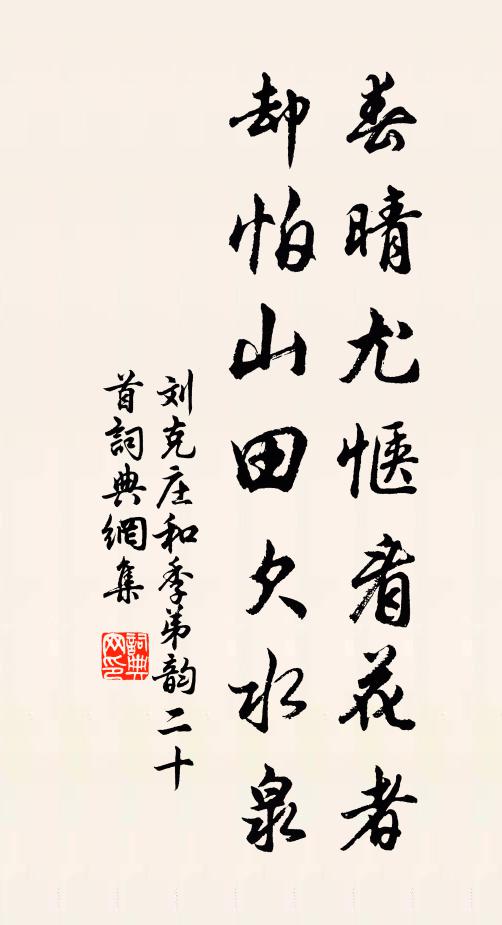 春晴尤惬看花者
却怕山田欠水泉
刘克庄和季弟韵二十
首詞典網集